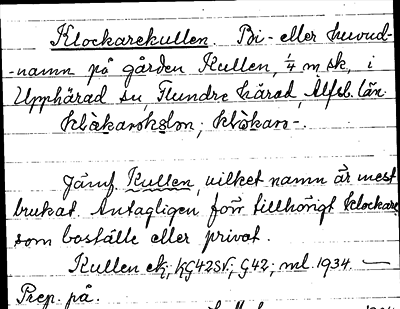 Klockarekullen. Bi- eller huvud-
-namn på gården Kullen, 1/4 m sk, i
Upphärad sn, Flundre härad, Älfsb. län.
Jämf. Kullen, vilket namn är mest
brukat. Antagligen förr tillhörigt klockare
som boställe eller privat.
Kullen ek, KG42SV; G42; ml. 1934. —
Prep. på.